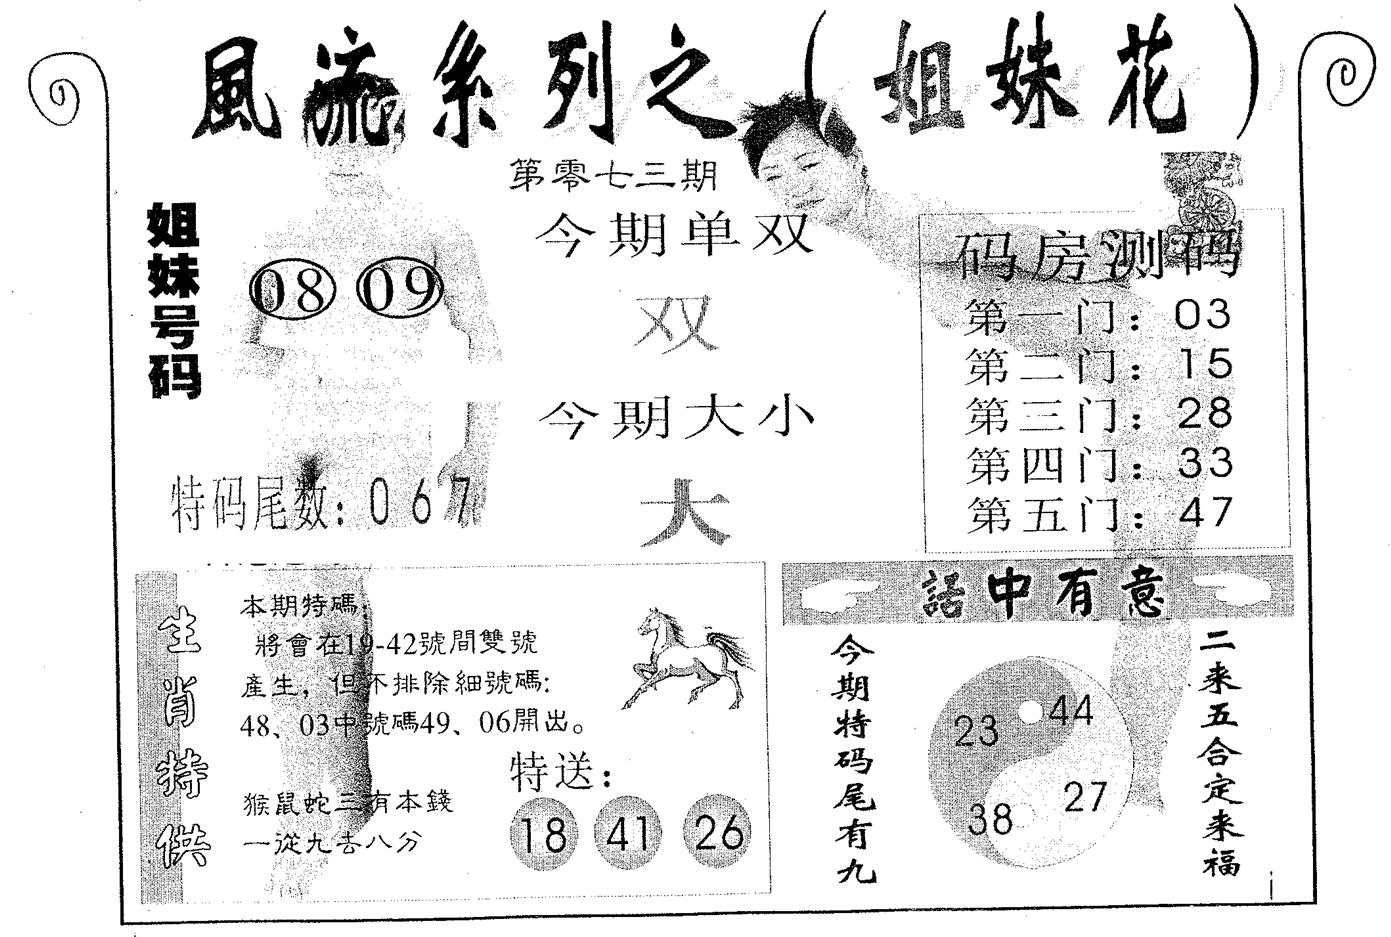 風流系列之（姐妹花）
第零七三期
姐妹号码
08 09
特码尾数：067
今期单双
双
今期大小
大
码房测码
第一门：03
第二门：15
第三门：28
第四门：33
第五门：47
生肖特供
本期特碼：
將會在19-42號間雙號
產生，但不排除細號碼：
48、03中號碼49、06開出。
猴鼠蛇三有本錢
一從九去八分
特送：
18 41 26
話中有意
今期特码尾有九
23 44
38 27
二来五合定来福